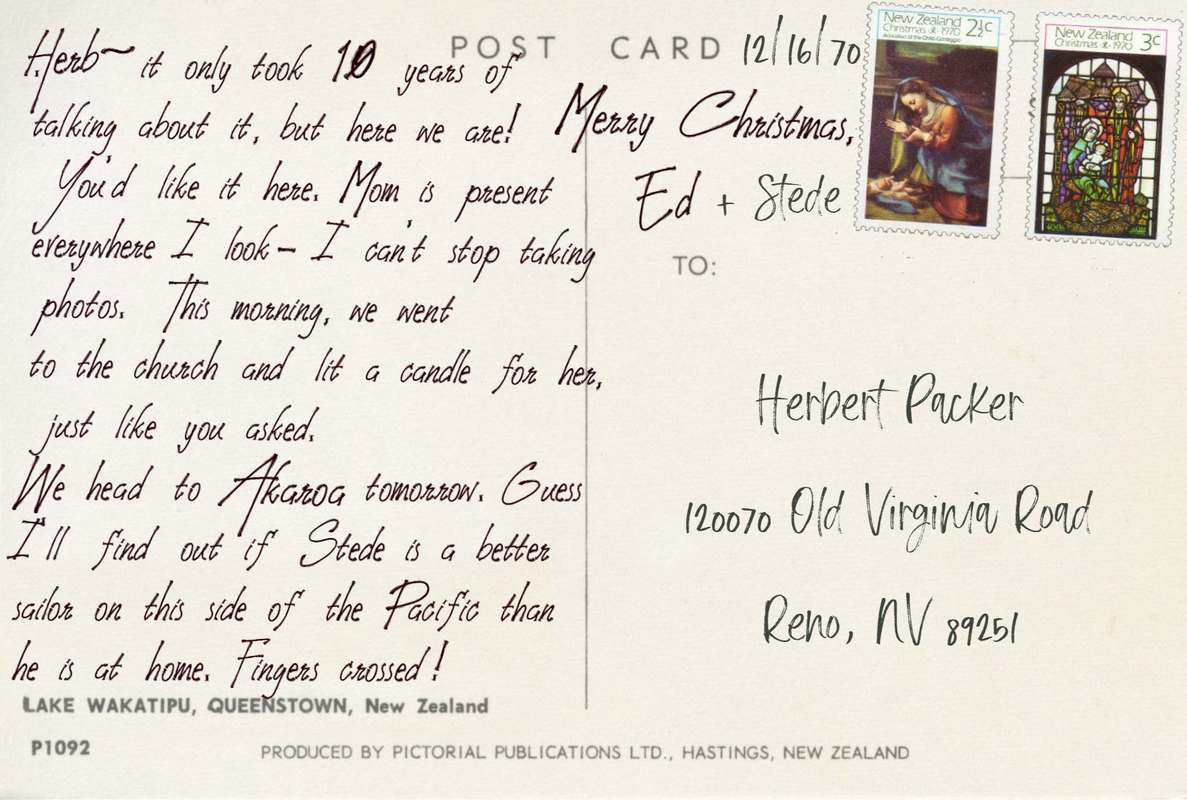 POST CARD
12/16/70
New Zealand 2½c
Christmas 1970
New Zealand 3c
Christmas 1970
Herb~ it only took 10 years of
talking about it, but here we are!
You'd like it here. Mom is present
everywhere I look – I can't stop taking
photos. This morning, we went
to the church and lit a candle for her,
just like you asked.
We head to Akaroa tomorrow. Guess
I'll find out if Stede is a better
sailor on this side of the Pacific than
he is at home. Fingers crossed!
Merry Christmas,
Ed + Stede
TO:
Herbert Packer
120070 Old Virginia Road
Reno, NV 89251
LAKE WAKATIPU, QUEENSTOWN, New Zealand
P1092
PRODUCED BY PICTORIAL PUBLICATIONS LTD., HASTINGS, NEW ZEALAND